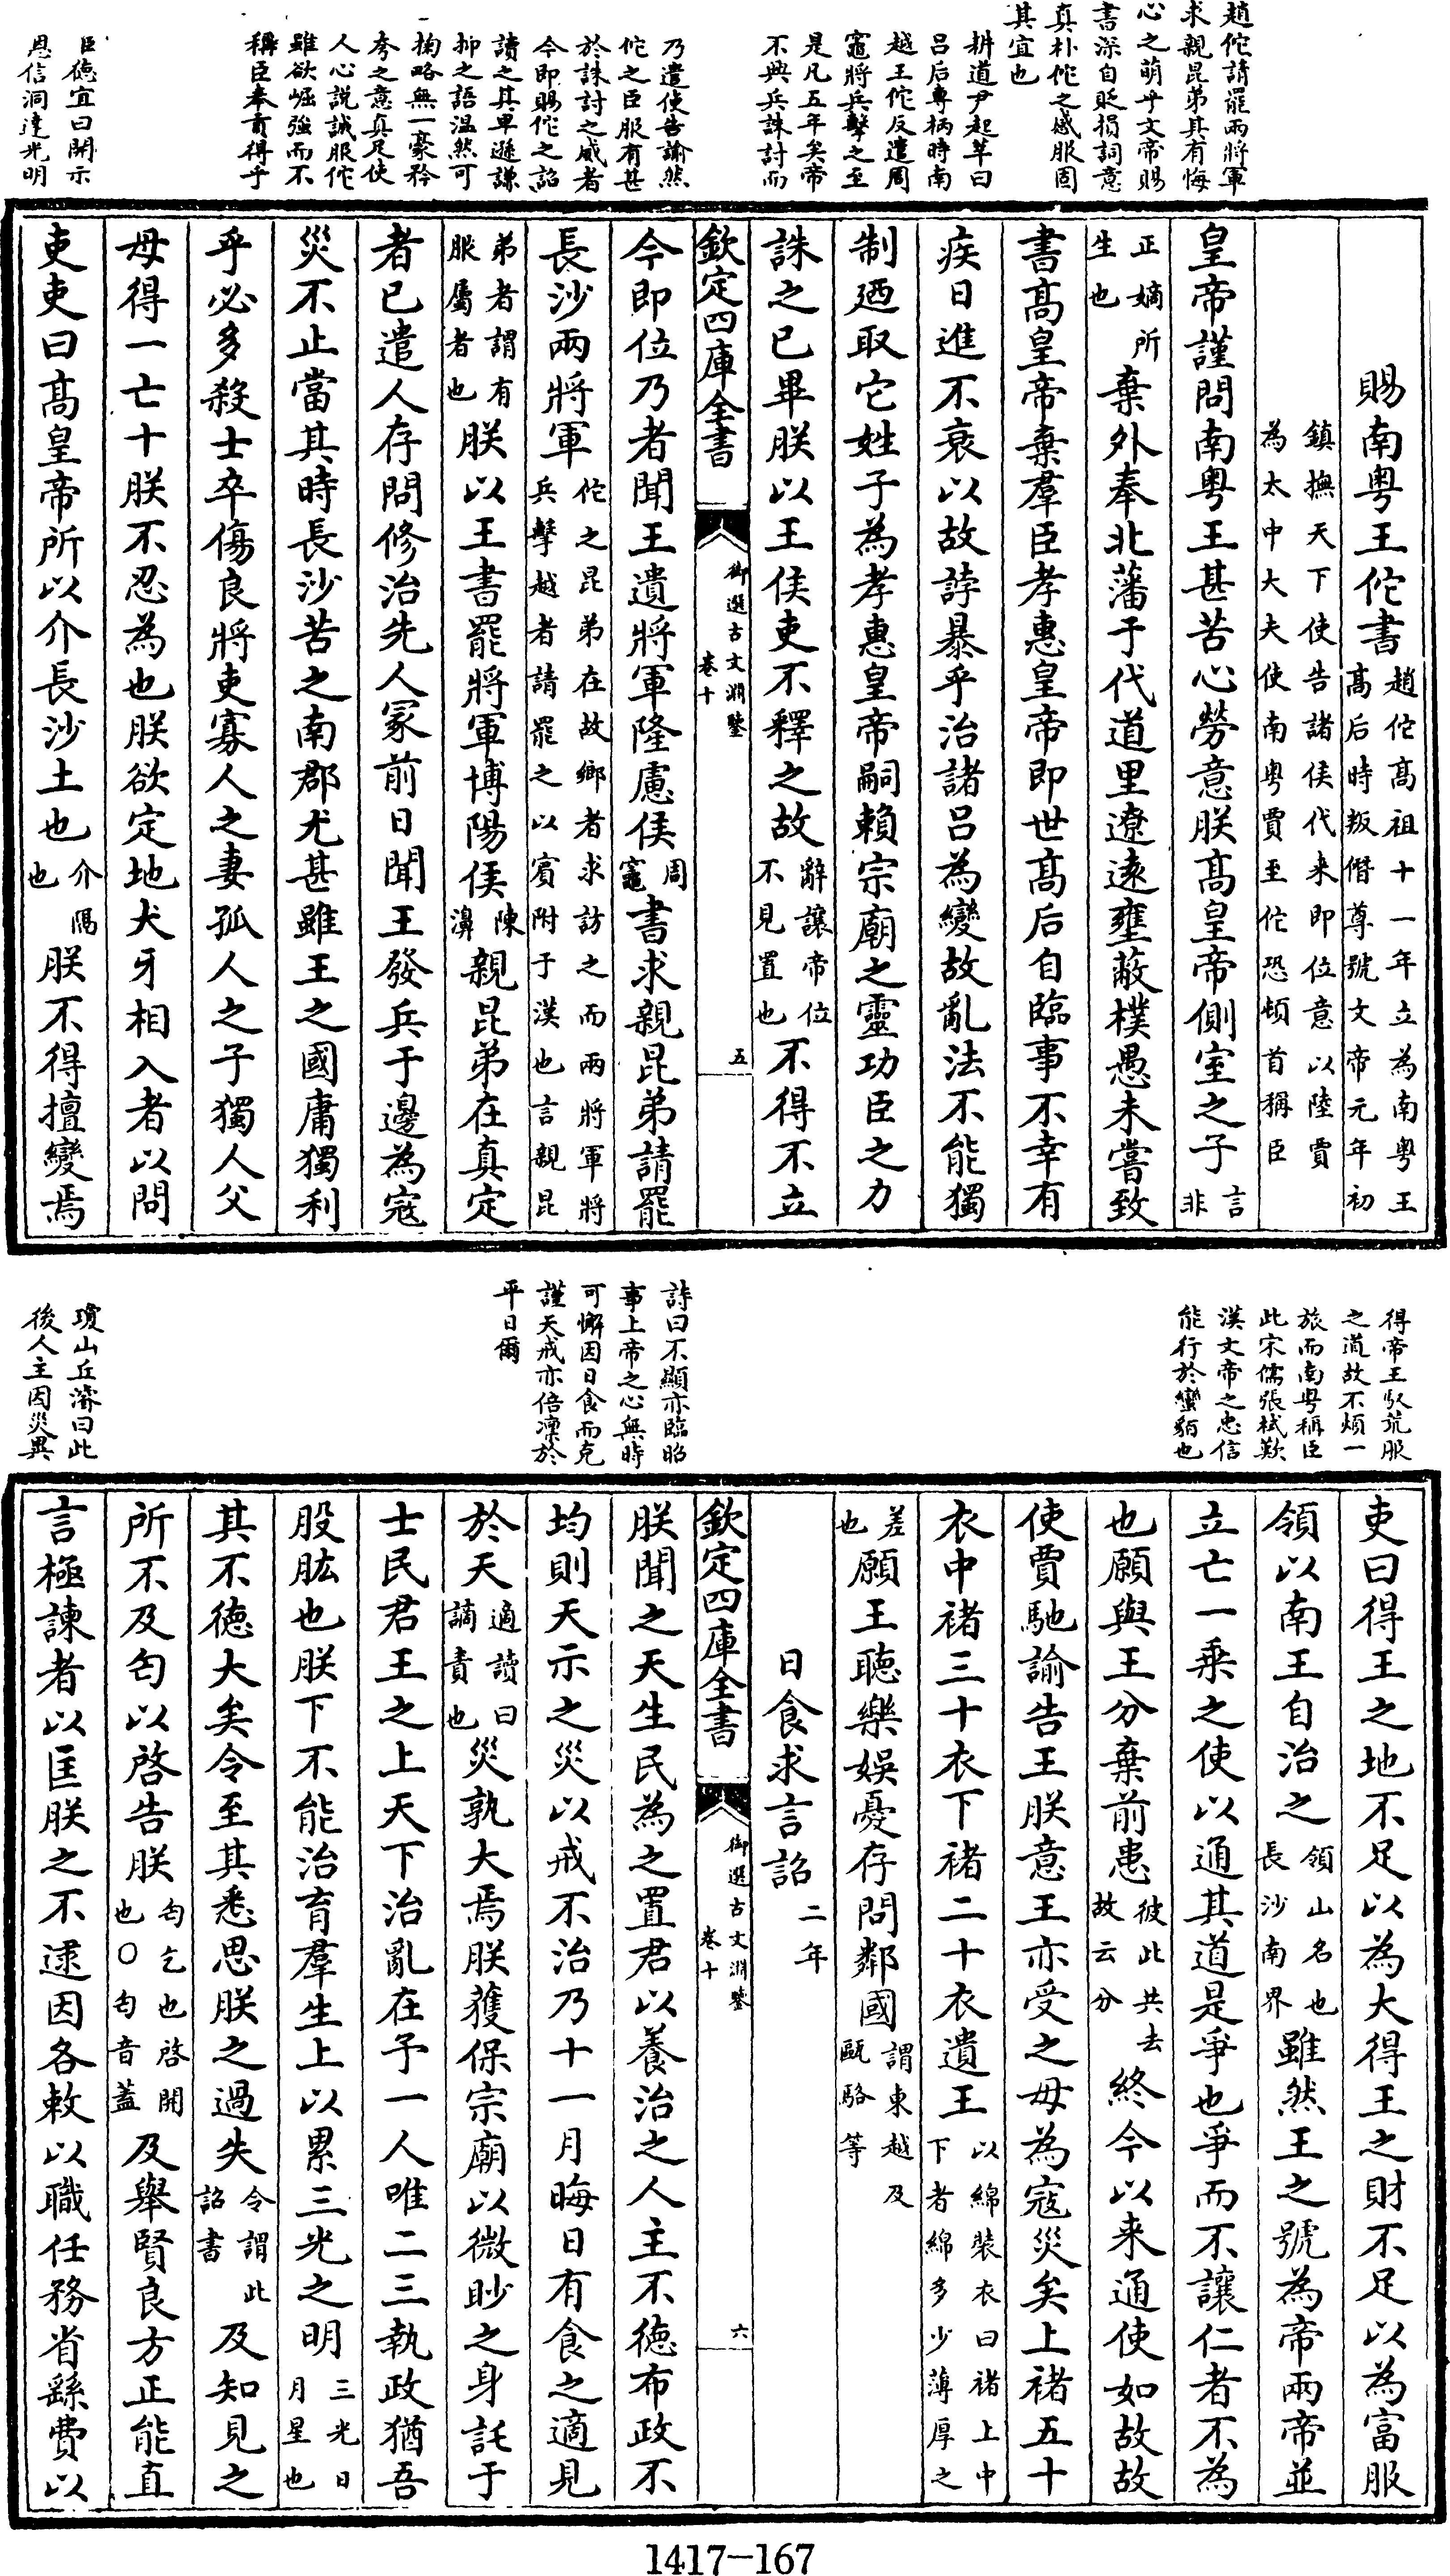 趙佗請罷兩將軍
求親昆弟其有悔
心之萌乎文帝賜
書深自貶損詞意
真朴佗之感服固
其宜也
耕道尹起莘曰
呂后專柄時南
越王佗反遣周
竈將兵擊之至
是凡五年矣帝
不興兵誅討而
乃遣使告諭然
佗之臣服有甚
於誅討之威者
今即賜佗之詔
讀之其卑遜謙
抑之語溫然可
掬略無一豪矜
夸之意真足使
人心說誠服佗
雖欲崛強而不
稱臣奉貢得乎
臣德宜曰開示
恩信洞達光明
賜南粤王佗書趙佗髙祖十一年立為南粤王髙后時叛僭尊號文帝元年初
鎮撫天下使告諸侯代来即位意以陸賈為太中大夫使南粤賈至佗恐頓首稱臣
皇帝謹問南粤王甚苦心勞意朕髙皇帝側室之子言非
正嫡所生也棄外奉北藩于代道里遼逺壅蔽樸愚未嘗致
書髙皇帝棄羣臣孝惠皇帝即世髙后自臨事不幸有
疾日進不衰以故誖暴乎治諸吕為變故亂法不能獨
制廼取它姓子為孝惠皇帝嗣賴宗廟之靈功臣之力
誅之已畢朕以王侯吏不釋之故辭讓帝位不見置也不得不立
欽定四庫全書
御選古文淵鑒
卷十
五
今即位乃者聞王遺將軍隆慮侯周竈書求親昆弟請罷
長沙兩將軍佗之昆弟在故鄉者求訪之而兩將軍將兵擊越者請罷之以賓附于漢也言親昆
弟者謂有服屬者也朕以王書罷將軍博陽侯陳濞親昆弟在真定
者已遣人存問修治先人冢前日聞王發兵于邊為寇
災不止當其時長沙苦之南郡尤甚雖王之國庸獨利
乎必多殺士卒傷良將吏寡人之妻孤人之子獨人父
母得一亡十朕不忍為也朕欲定地犬牙相入者以問
吏吏曰髙皇帝所以介長沙土也介隔也朕不得擅變焉
得帝王馭荒服
之道故不煩一
旅而南粤稱臣
此宋儒張栻歎
漢文帝之忠信
能行於蠻貊也
詩曰不顯亦臨昭
事上帝之心無時
可懈因日食而克
謹天戒亦倍凜於
平日爾
瓊山丘濬曰此
後人主因災異
吏曰得王之地不足以為大得王之財不足以為富服
領以南王自治之領山名也長沙南界雖然王之號為帝兩帝並
立亡一乗之使以通其道是爭也爭而不讓仁者不為
也願與王分棄前患彼此共去故云分終今以来通使如故故
使賈馳諭告王朕意王亦受之毋為寇災矣上褚五十
衣中褚三十衣下褚二十衣遺王以綿裝衣曰褚上中下者綿多少薄厚之
差也願王聽樂娛憂存問鄰國謂東越及甌駱等
日食求言詔二年
欽定四庫全書
御選古文淵鑒
卷十
六
朕聞之天生民為之置君以養治之人主不徳布政不
均則天示之災以戒不治乃十一月晦日有食之適見
於天適讀曰謫責也災孰大焉朕獲保宗廟以微眇之身託于
士民君王之上天下治亂在予一人唯二三執政猶吾
股肱也朕下不能治育羣生上以累三光之明三光日月星也
其不徳大矣令至其悉思朕之過失令謂此詔書及知見之
所不及匄以啓告朕匄乞也啓開也○匄音蓋及舉賢良方正能直
言極諫者以匡朕之不逮因各敕以職任務省繇費以
1417—167